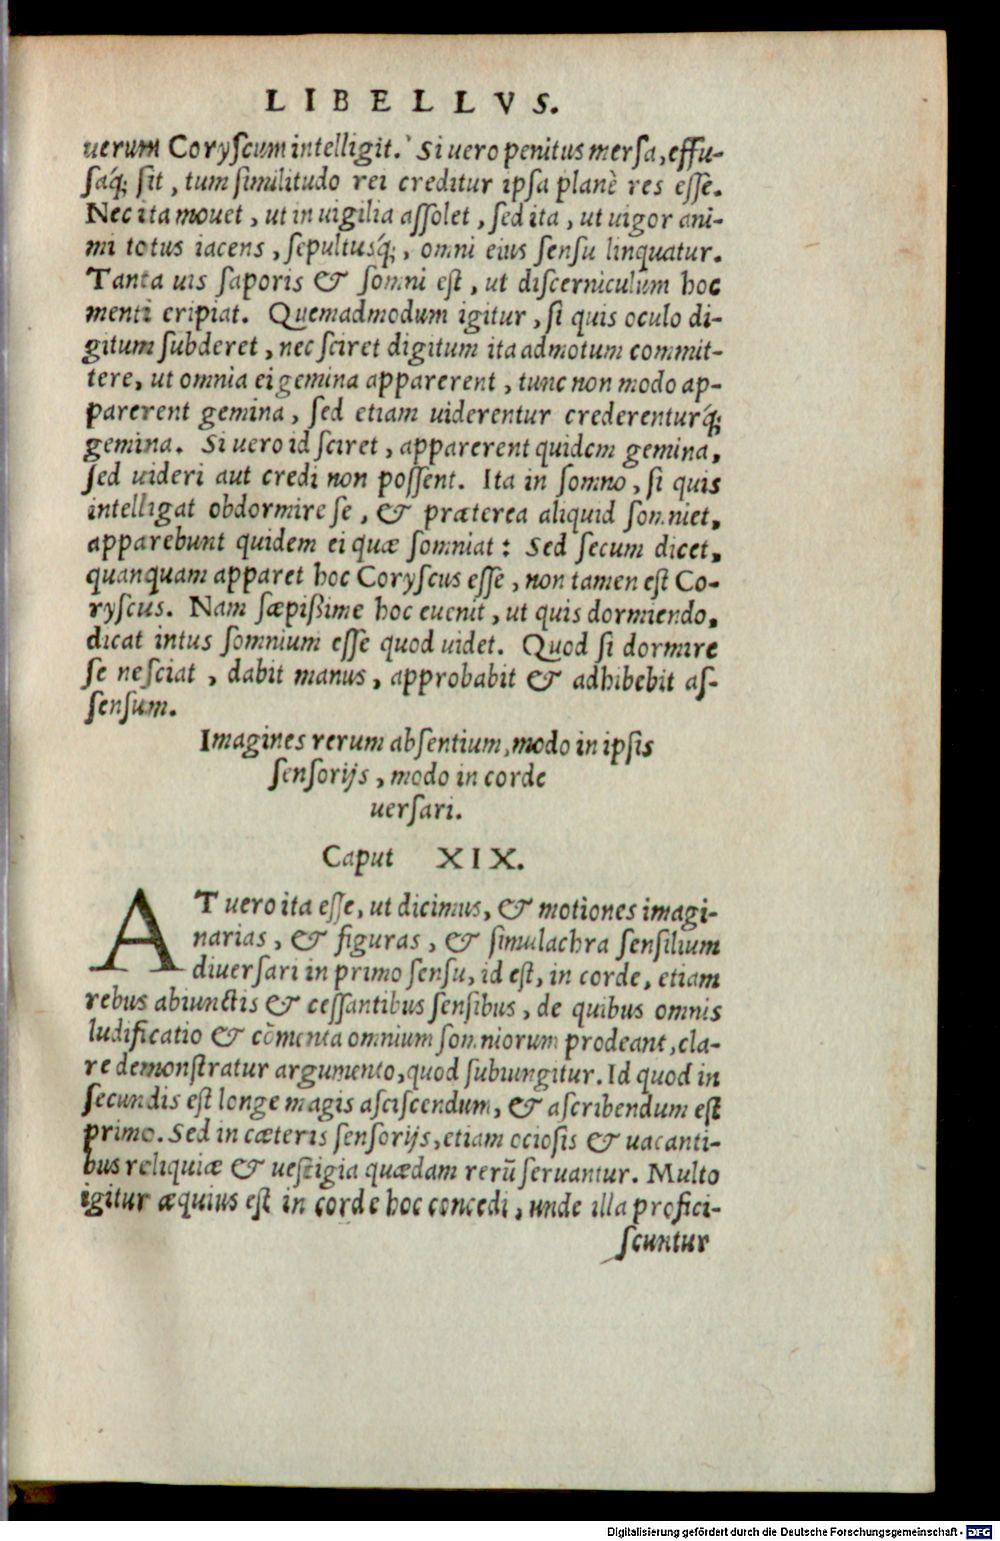 LIBELLVS.
uerum Coryſcum intelligit. Si uero penitus merſa, effu-
ſaq́; ſit, tum ſimilitudo rei creditur ipſa planè res eſſe.
Nec ita mouet, ut in uigilia aſſolet, ſed ita, ut uigor ani-
mi totus iacens, ſepultusq́;, omni eius ſenſu linquatur.
Tanta uis ſaporis & ſomni eſt, ut diſcerniculum hoc
menti eripiat. Quemadmodum igitur, ſi quis oculo di-
gitum ſubderet, nec ſciret digitum ita admotum commit-
tere, ut omnia ei gemina apparerent, tunc non modo ap-
parerent gemina, ſed etiam uiderentur crederenturq́;
gemina. Si uero id ſciret, apparerent quidem gemina,
ſed uideri aut credi non poſſent. Ita in ſomno, ſi quis
intelligat obdormire ſe, & præterea aliquid ſomniet,
apparebunt quidem ei quæ ſomniat: Sed ſecum dicet,
quanquam apparet hoc Coryſcus eſſe, non tamen eſt Co-
ryſcus. Nam ſæpißime hoc euenit, ut quis dormiendo,
dicat intus ſomnium eſſe quod uidet. Quod ſi dormire
ſe neſciat, dabit manus, approbabit & adhibebit aſ-
ſenſum.
Imagines rerum abſentium, modo in ipſis
ſenſorijs, modo in corde
uerſari.
Caput XIX.
AT uero ita eſſe, ut dicimus, & motiones imagi-
narias, & figuras, & ſimulachra ſenſilium
diuerſari in primo ſenſu, id eſt, in corde, etiam
rebus abiunctis & ceſſantibus ſenſibus, de quibus omnis
ludificatio & cōmenta omnium ſomniorum prodeant, cla-
re demonſtratur argumento, quod ſubiungitur. Id quod in
ſecundis eſt longe magis aſciſcendum, & aſcribendum eſt
primo. Sed in cæteris ſenſorijs, etiam ocioſis & uacanti-
bus reliquiæ & ueſtigia quædam rerū ſeruantur. Multo
igitur æquius eſt in corde hoc concedi, unde illa profici-
ſcuntur
Digitalisierung gefördert durch die Deutsche Forschungsgemeinschaft - DFG